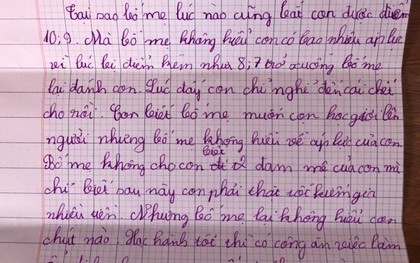 Tai sao bố mẹ lúc nào cũng bắt con được điểm
10; 9. Mà bố mẹ không hiểu con có bao nhiêu áp lực
với lúc bị điểm kém như 8; 7 trở xuống bố mẹ
lại đánh con. Lúc đấy con chỉ nghĩ đến cái chết
cho rồi. Con biết bố mẹ muốn con học giỏi lên
người nhưng bố mẹ không hiểu về áp lực của con
Bố mẹ không cho con biết đam mê của con mà
chỉ biết sau này con phải thật tốt kiếm
nhiều tiền. Nhưng bố mẹ lại không hiểu con
chút nào. Học hành tốt thì có công ăn việc làm